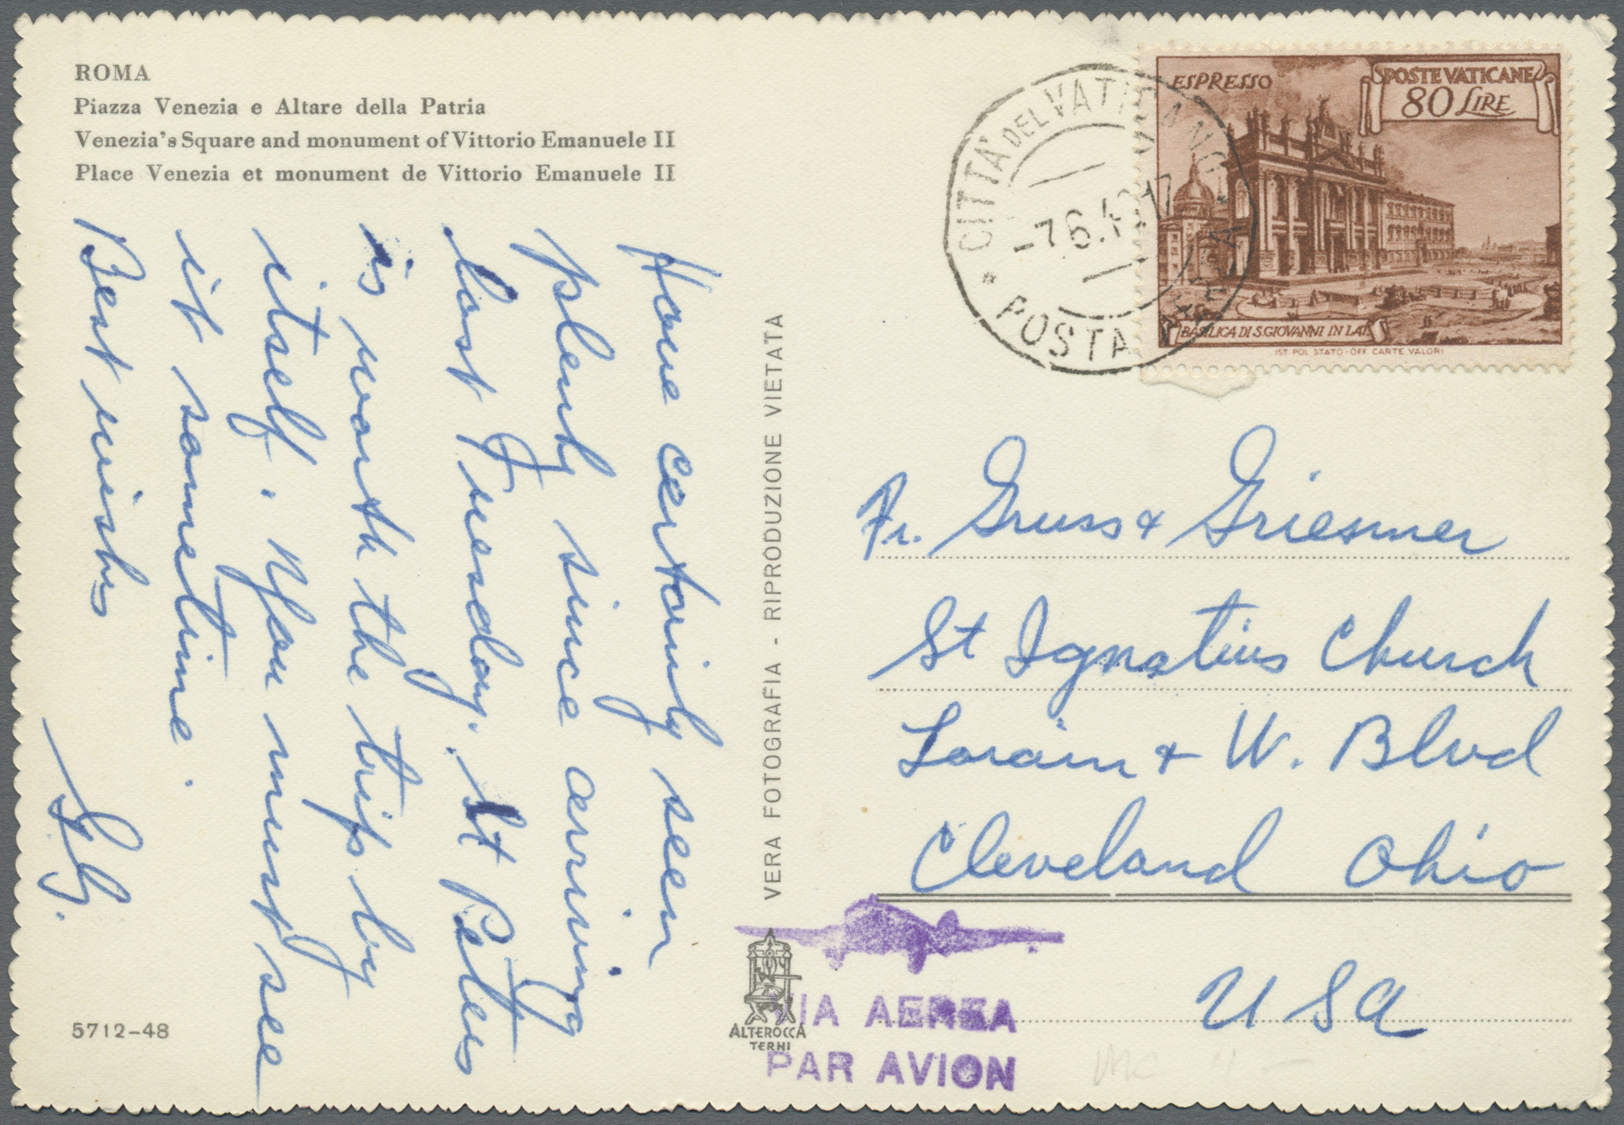 ROMA
Piazza Venezia e Altare della Patria
Venezia's Square and monument of Vittorio Emanuele II
Place Venezia et monument de Vittorio Emanuele II
Have certainly seen
plenty since arriving
last Tuesday. St Peters
is worth the trip by
itself. You must see
it sometime.
Best wishes
5712-48
VERA FOTOGRAFIA - RIPRODUZIONE VIETATA
ALTEROCCA
TERNI
CITTÀ DEL VATICANO
-7.6.49.17
* POSTA AEREA *
ESPRESSO
POSTE VATICANE
80 LIRE
BASILICA DI S. GIOVANNI IN LAT.
IST. POL. STATO-OFF. CARTE VALORI
Fr. Gruss & Griesmer
St Ignatius Church
Lorain & W. Blvd
Cleveland Ohio
USA
VIA AEREA
PAR AVION